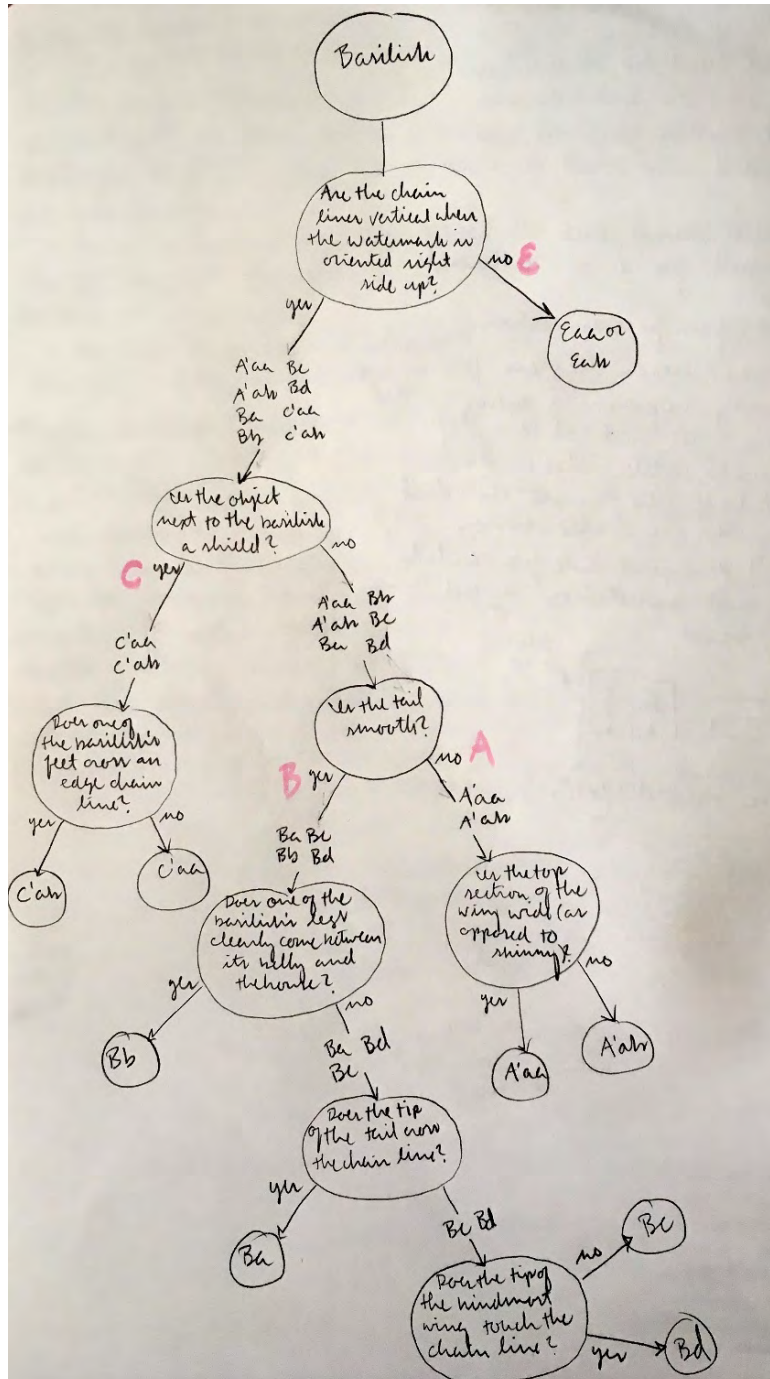 Basilisk
Are the chain
lines vertical when
the watermark is
oriented right
side up?
no E
yes
Eaa or
Eab
A'aa Bc
A'ab Bd
Ba C'aa
Bb C'ab
Is the object
next to the basilisk
a shield?
C yes
no
C'aa
C'ab
A'aa Bb
A'ab Bc
Ba Bd
Does one of
the basilisk's
feet cross an
edge chain
line?
yes
no
C'ab
C'aa
Is the tail
smooth?
B yes
no A
Ba Bc
Bb Bd
A'aa
A'ab
Does one of the
basilisk's legs
clearly come between
its belly and
the house?
yes
no
Bb
Is the top
section of the
wing wide (as
opposed to
skinny)?
yes
no
A'aa
A'ab
Ba Bd
Bc
Does the tip
of the tail cross
the chain line?
yes
Ba
Bc Bd
Does the tip of
the hindmost
wing touch the
chain line?
no
Bc
yes
Bd